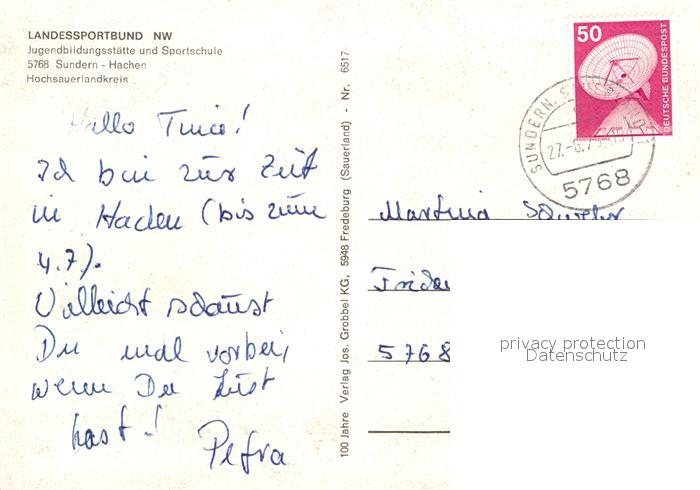 LANDESSPORTBUND NW
Jugendbildungsstätte und Sportschule
5768 Sundern - Hachen
Hochsauerlandkreis
Hallo Tina!
Ich bin zur Zeit
in Hachen (bis zum
4.7).
Vielleicht schaust
Du mal vorbei,
wenn Du Lust
hast!
Petra
100 Jahre Verlag Jos. Grobbel KG, 5948 Fredeburg (Sauerland) - Nr. 6517
50
DEUTSCHE BUNDESPOST
SUNDERN
5768
Martina
5768
privacy protection
Datenschutz